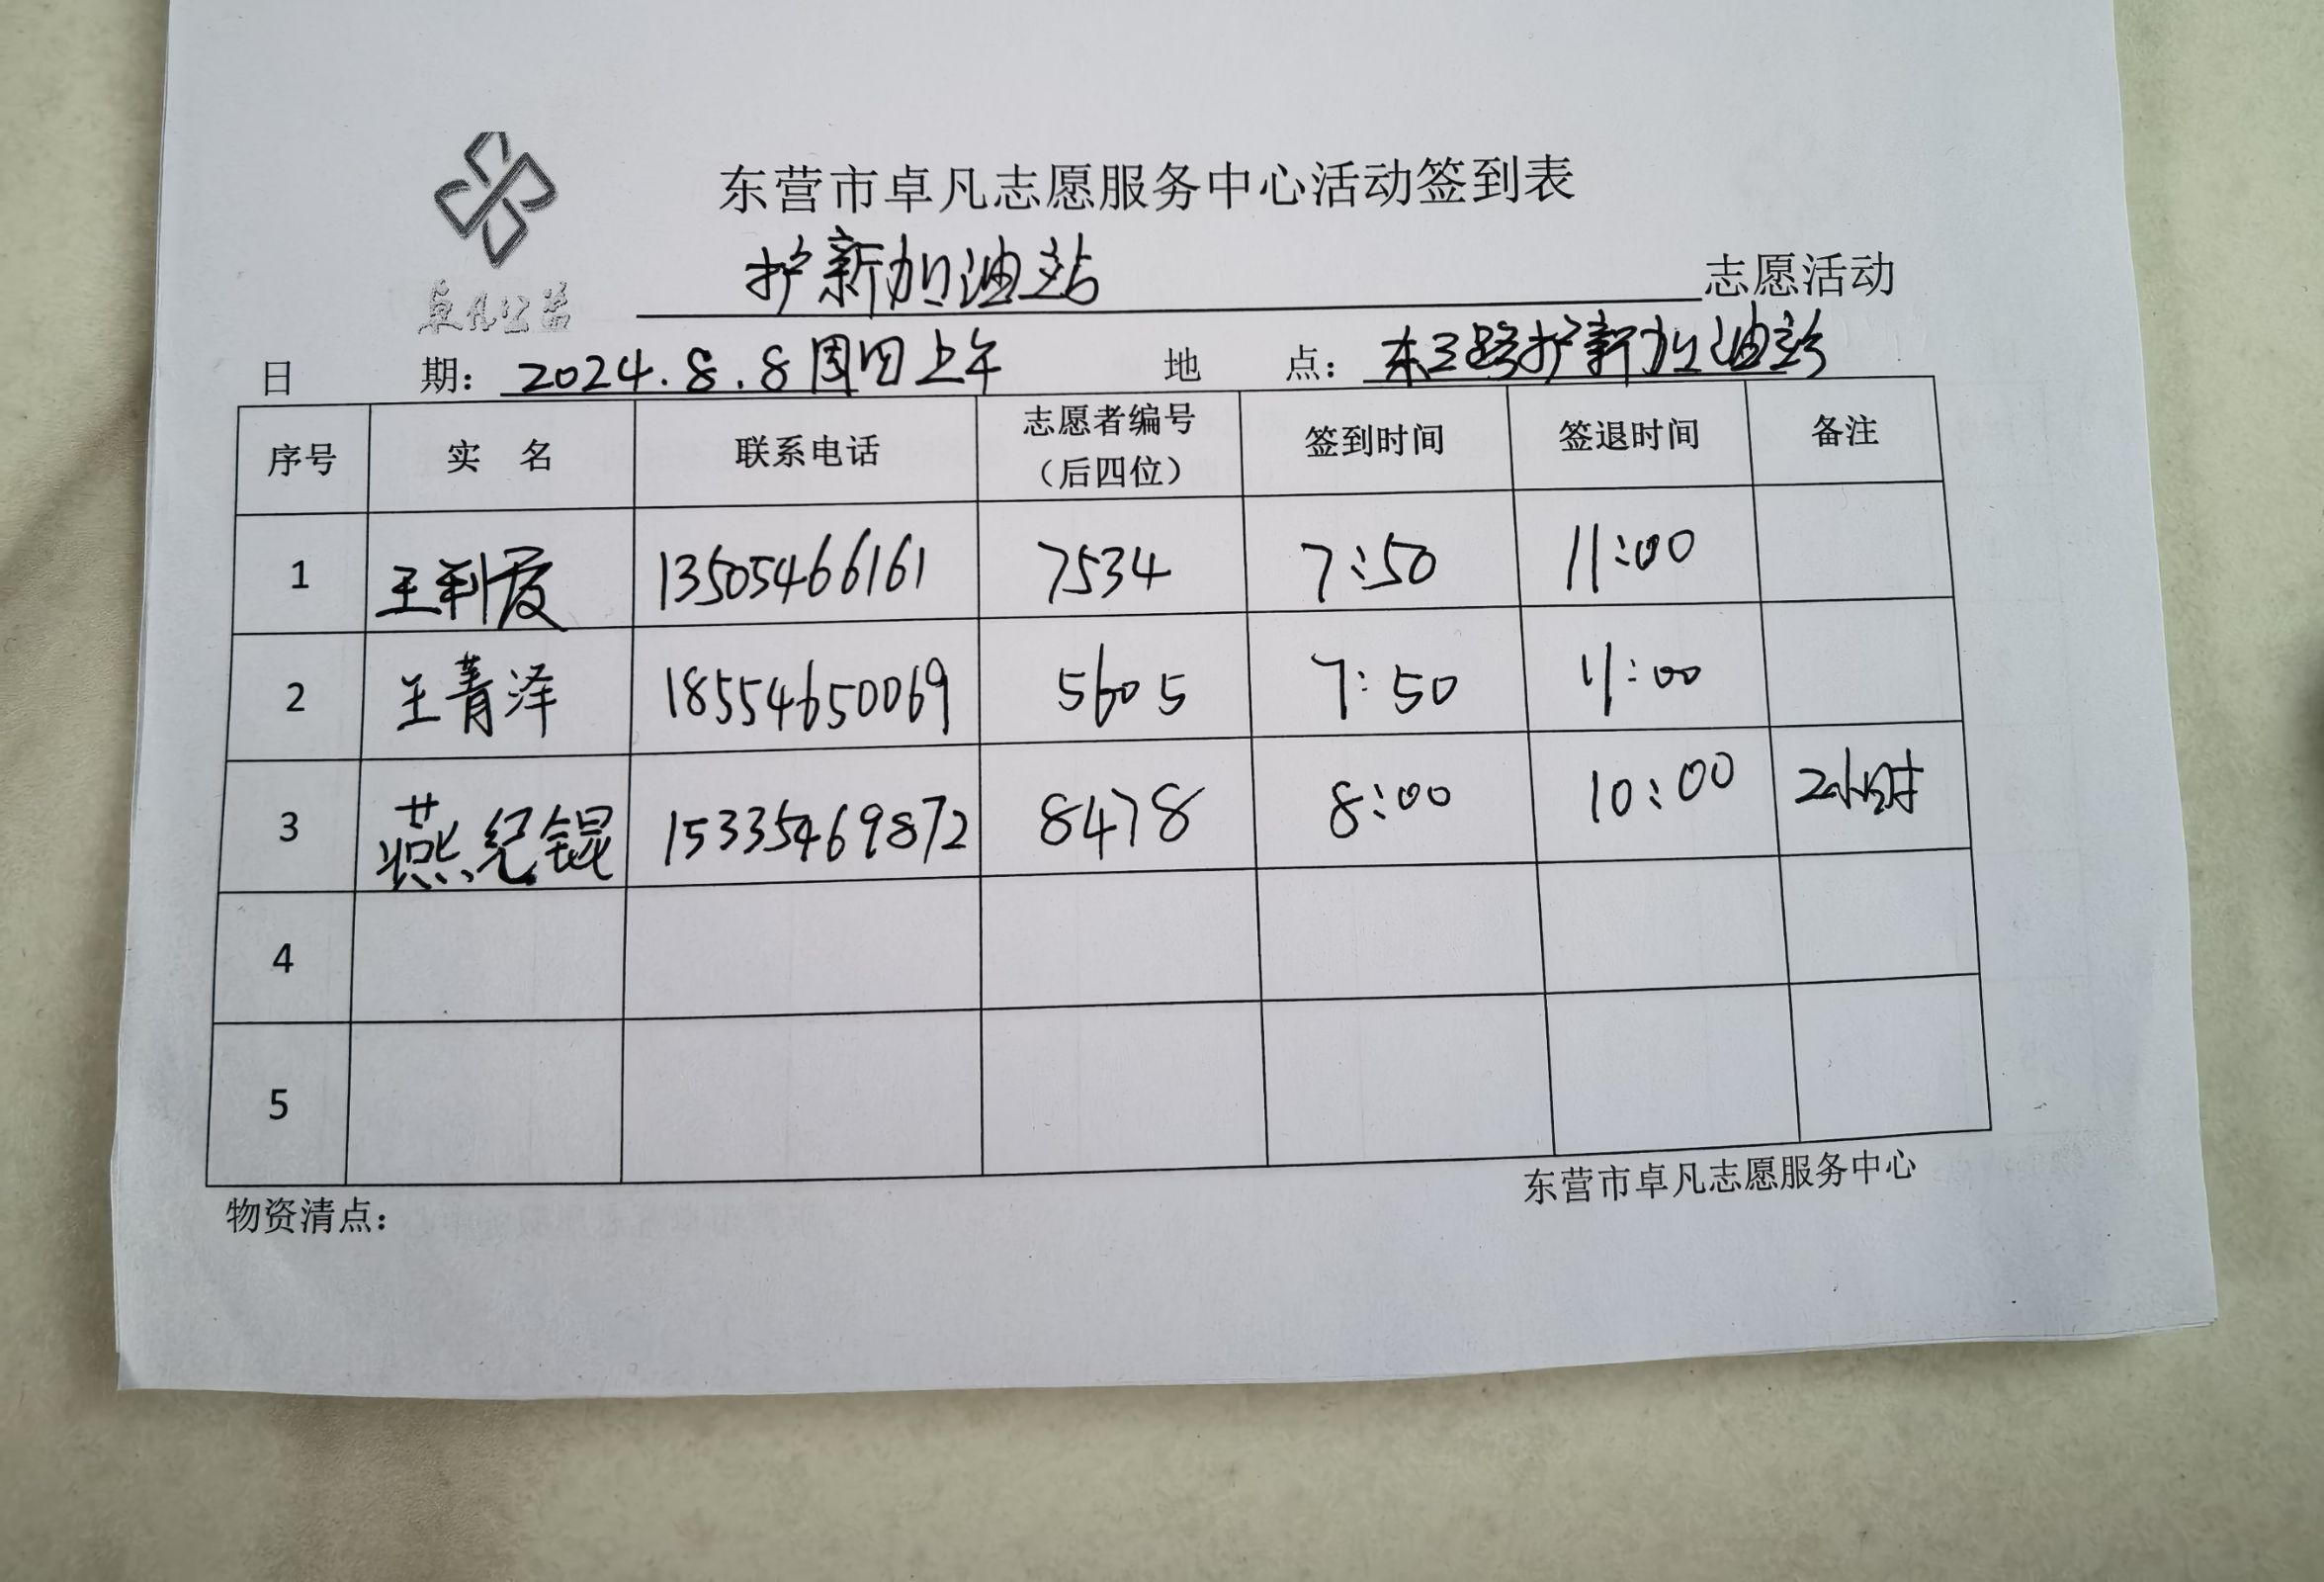 东营市卓凡志愿服务中心活动签到表
卓凡公益
护新加油站 志愿活动
日 期：2024.8.8周四上午 地 点：东三路护新加油站
序号 实 名 联系电话 志愿者编号（后四位） 签到时间 签退时间 备注
1 王利霞 13505466161 7534 7:50 11:00
2 王菁泽 18554650069 5605 7:50 11:00
3 燕纪锟 15335469872 8478 8:00 10:00 2小时
4
5
东营市卓凡志愿服务中心
物资清点：